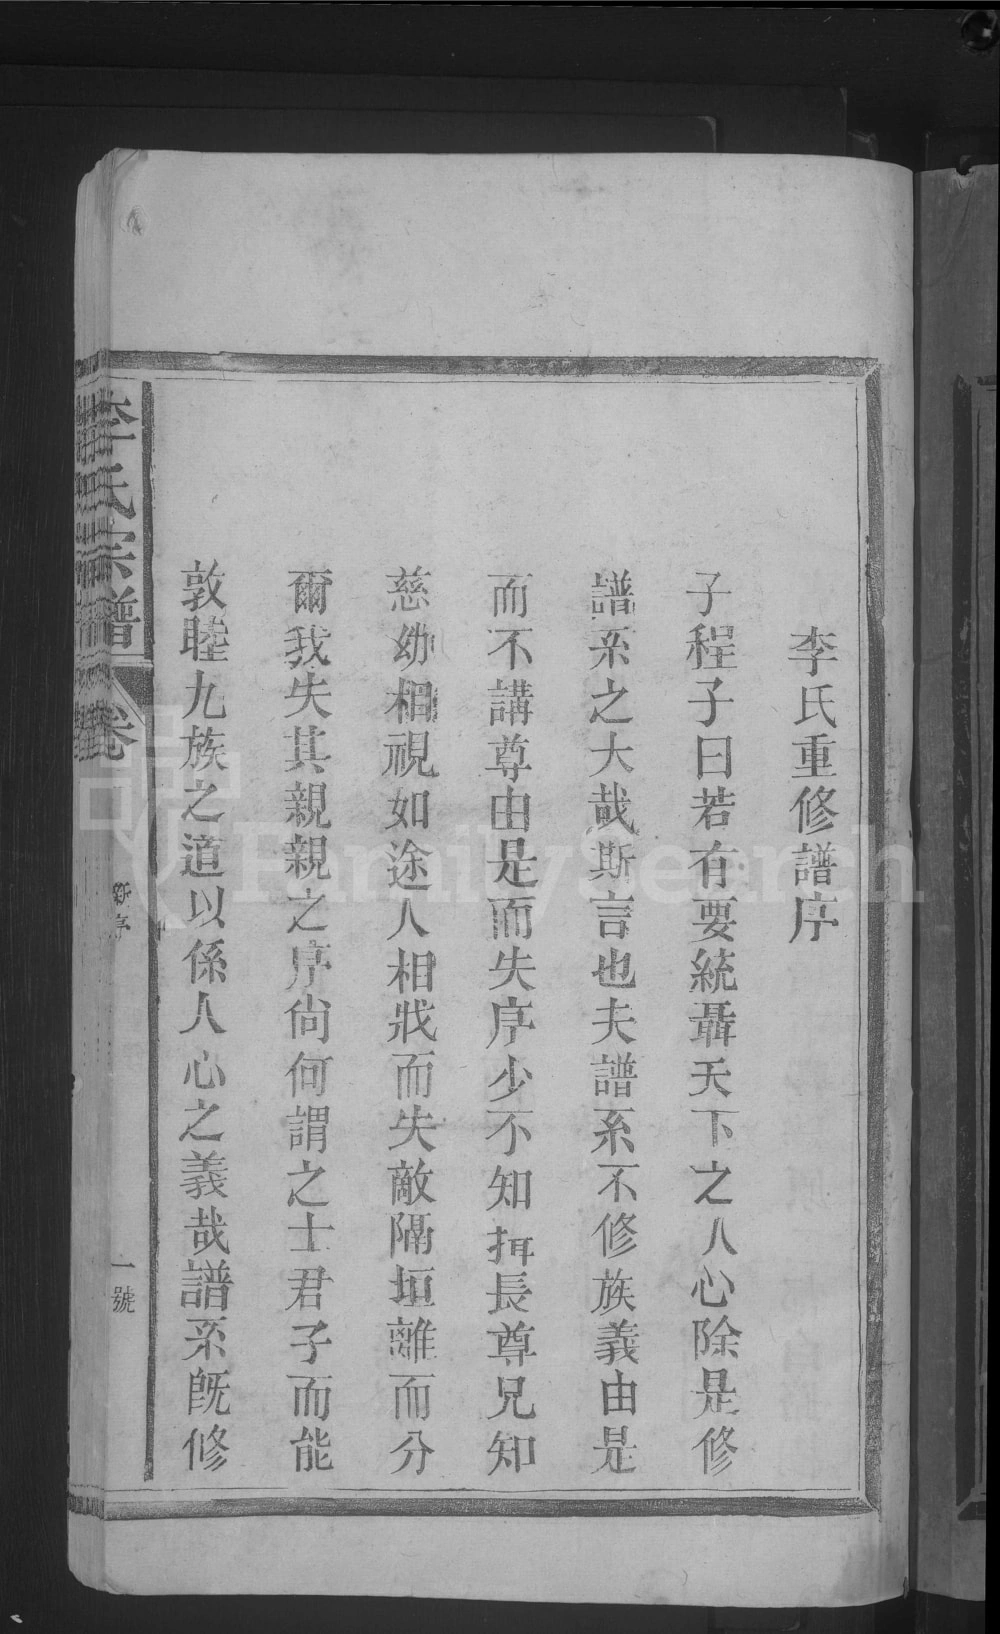 李氏重修譜序
子程子曰若有要統聶天下之人心除是修
譜系之大哉斯言也夫譜系不修族義由是
而不講尊由是而失序少不知揖長尊兄知
慈幼相視如途人相戕而失敵隔垣離而分
爾我失其親親之序尙何謂之士君子而能
敦睦九族之道以係人心之義哉譜系旣修
李氏宗譜
卷
新序
一號
FamilySearch